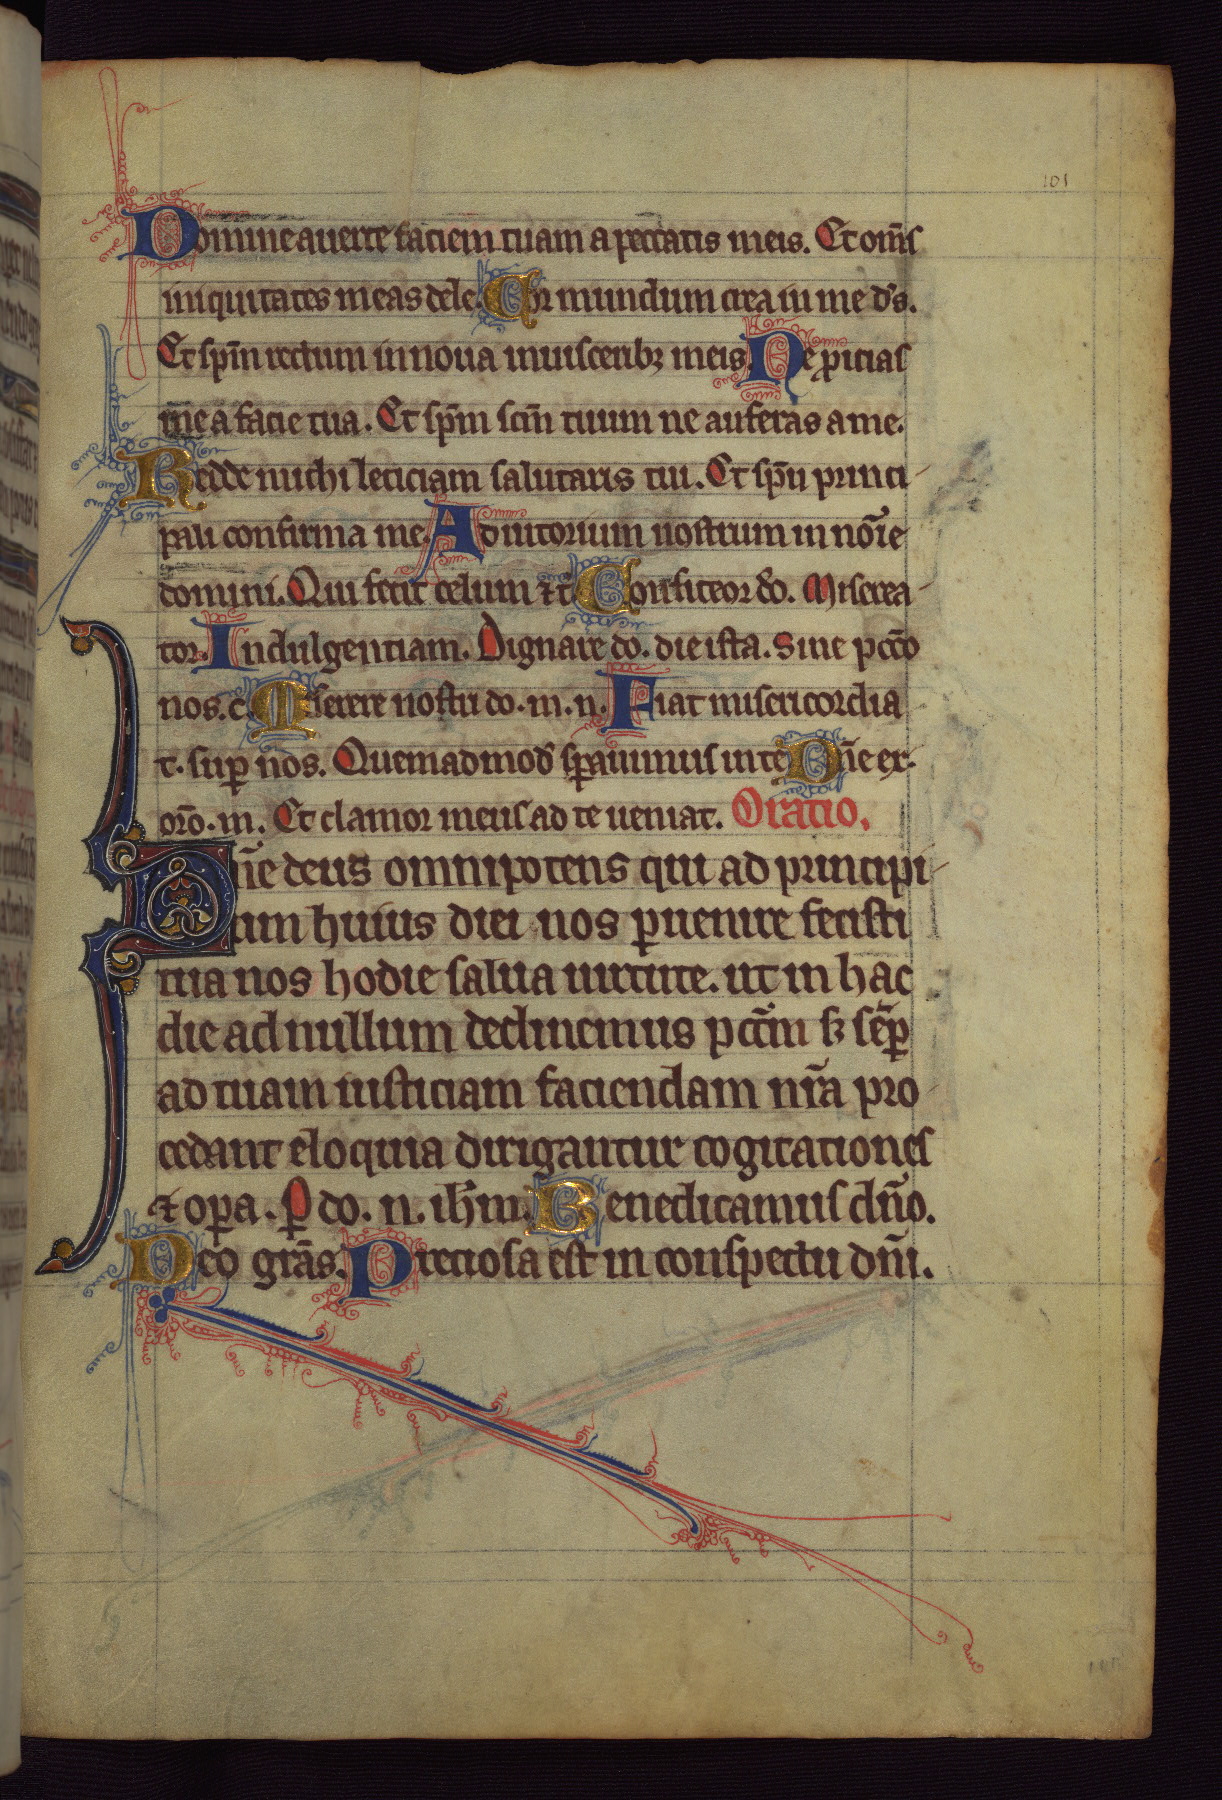 101
Domine auerte faciem tuam a peccatis meis. Et om̄s
iniquitates meas dele. Cor mundum crea in me d's.
Et sp̄m rectum innoua in uisceribꝫ meis. Ne ꝓicias
me a facie tua. Et sp̄m sc̄m tuum ne auferas a me.
Redde michi leticiam salutaris tui. Et sp̄u princi-
pali confirma me. Adiutorium nostrum in noīe
domini. Qui fecit celum ⁊ t̄. Confiteor d̄o. Miserea-
tor. Indulgentiam. Dignare do. die ista. Sine pcc̄o
nos. c. Miserere nostri do. m. n. Fiat misericordia
t. suꝑ nos. Quemadmod̄ sꝑauimus in te. Dn̄e ex.
orō. m. Et clamor meus ad te ueniat. Oratio.
Dn̄e deus omnipotens qui ad principi-
um huius diei nos ꝑuenire fecisti
tua nos hodie salua uirtute. ut in hac
die ad nullum declinemus pcc̄m sꝫ sēꝑ
ad tuam iusticiam faciendam nr̄a pro-
cedant eloquia dirigantur cogitationes
⁊ oꝑa. Ꝑ do. n. ih̄m. Benedicamus dn̄o.
Deo grās. Preciosa est in conspectu dn̄i.